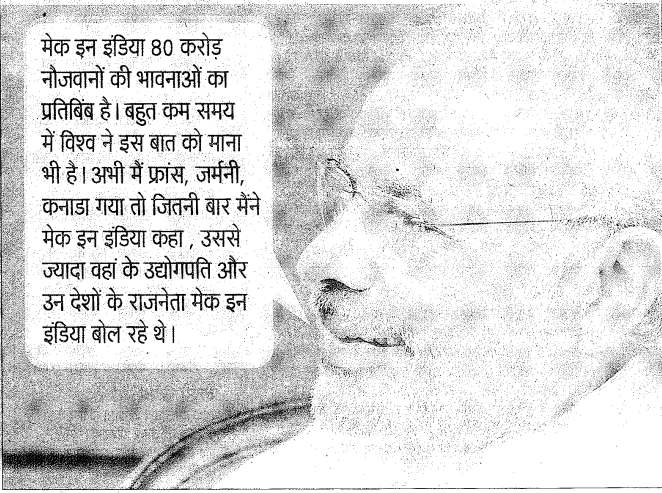 मेक इन इंडिया 80 करोड़
नौजवानों की भावनाओं का
प्रतिबिंब है। बहुत कम समय
में विश्व ने इस बात को माना
भी है। अभी मैं फ्रांस, जर्मनी,
कनाडा गया तो जितनी बार मैंने
मेक इन इंडिया कहा , उससे
ज्यादा वहां के उद्योगपति और
उन देशों के राजनेता मेक इन
इंडिया बोल रहे थे।